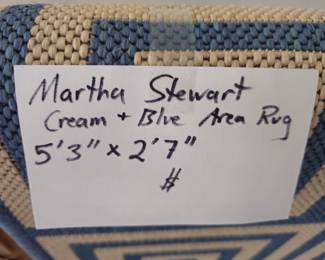 Martha Stewart
Cream + Blue Area Rug
5'3" x 2'7"
#